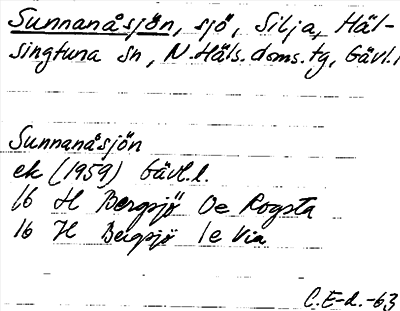 Sunnanåsjön, sjö, Silja, Häl-
singtuna sn, N.Häls.doms.tg, Gävl.l
Sunnanåsjön
ek (1959) Gävl.l.
16 H Bergsjö 0e Rogsta
16 H Bergsjö 1e Via
C.E-d.-63